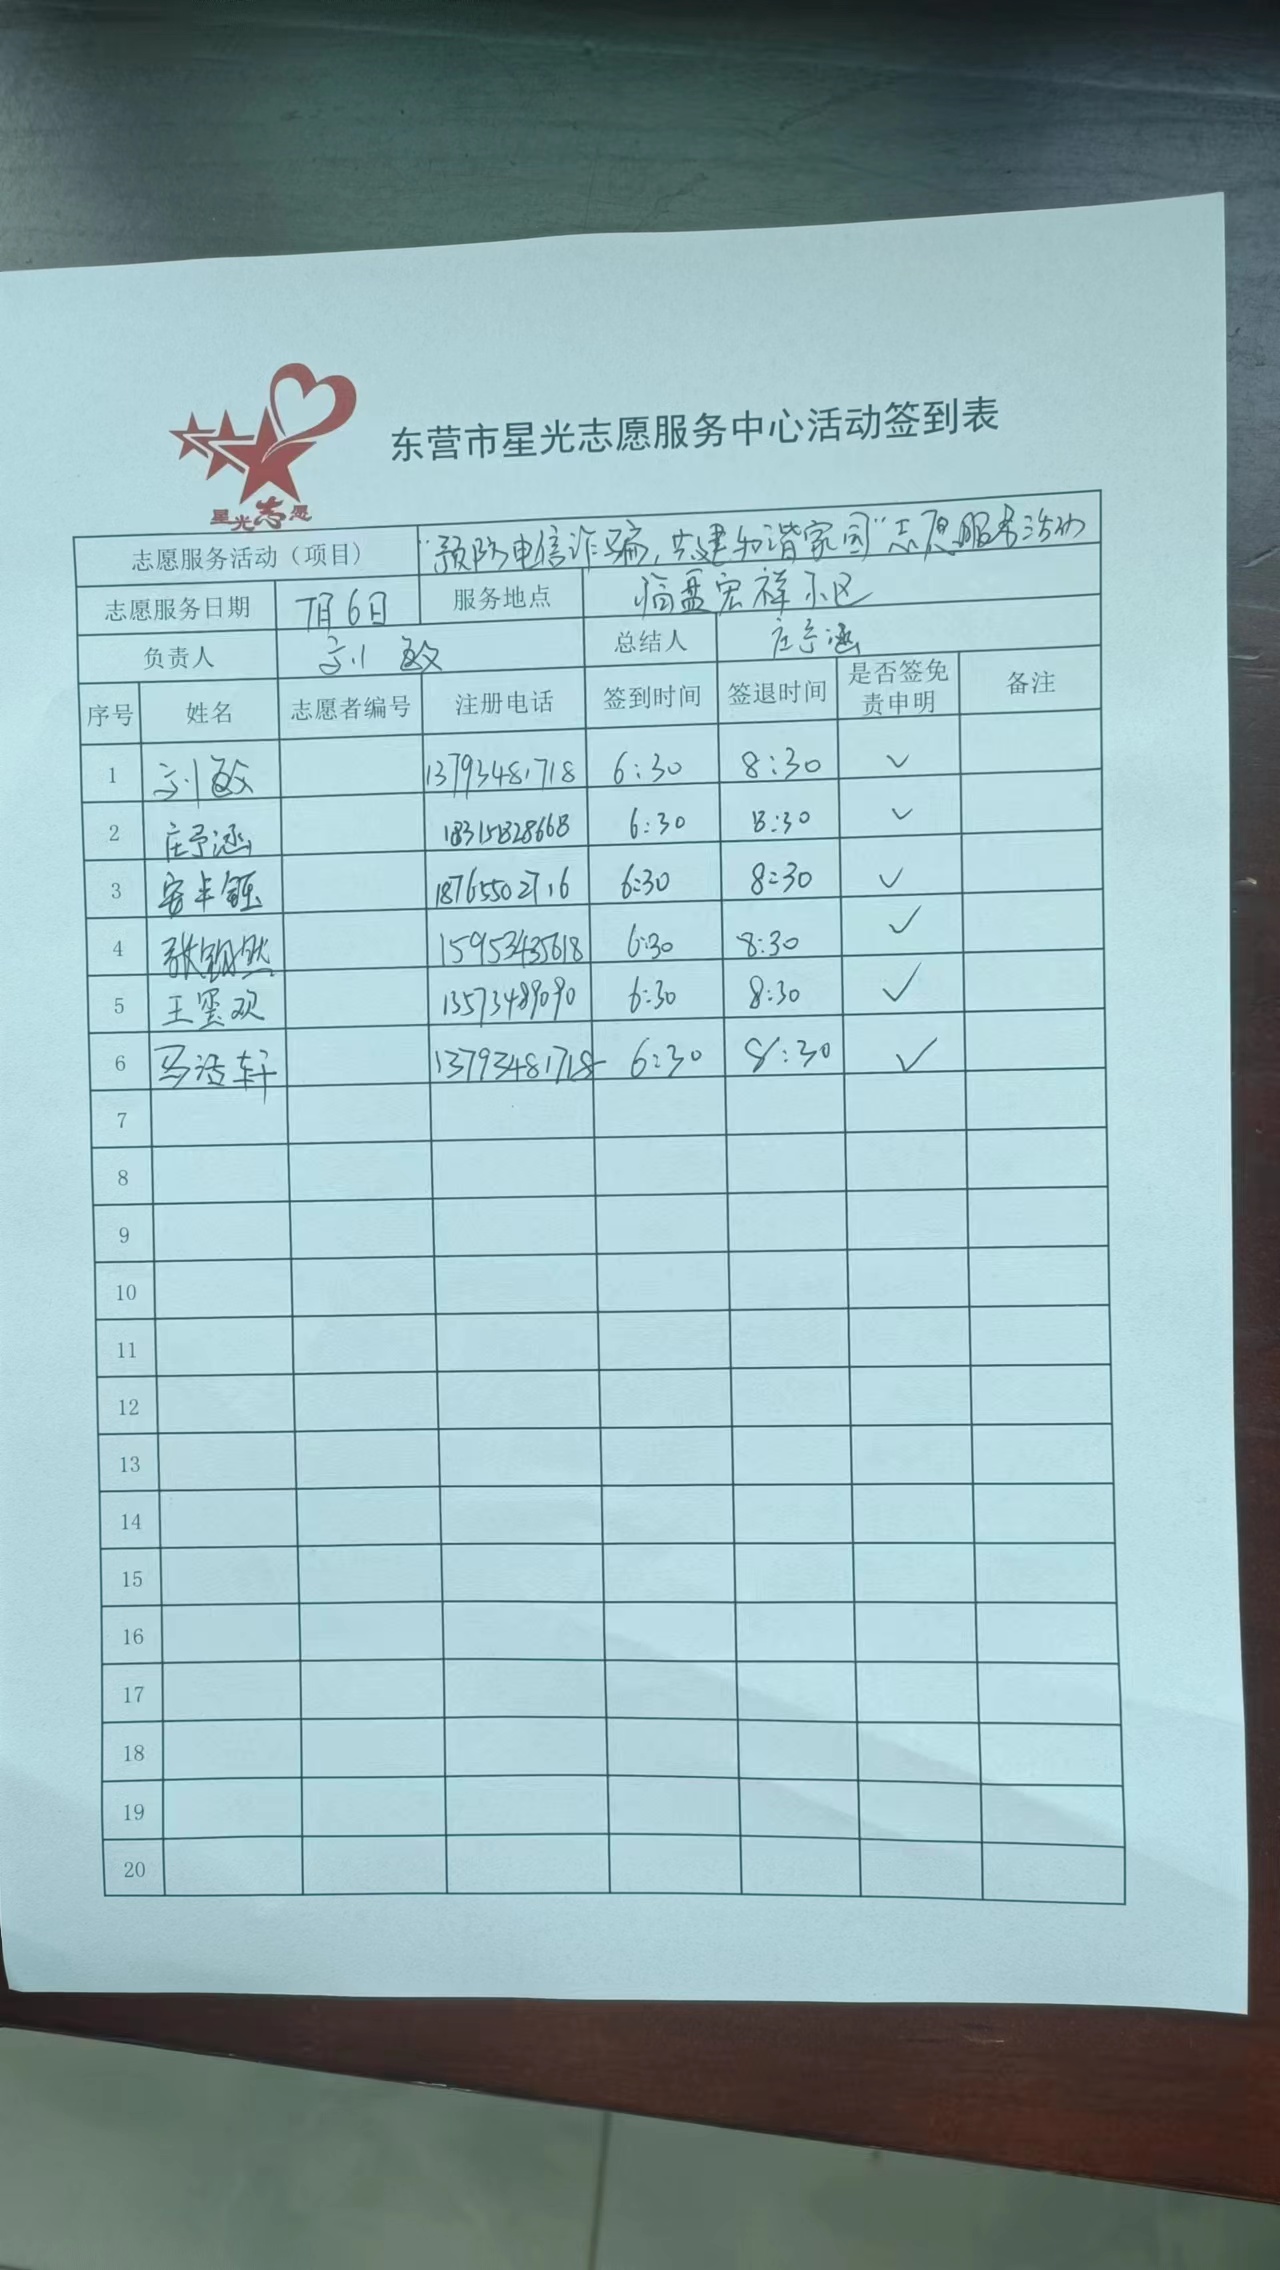 星光志愿
东营市星光志愿服务中心活动签到表
志愿服务活动（项目） “预防电信诈骗，共建和谐家园”志愿服务活动
志愿服务日期 7月6日 服务地点 临盘宏祥小区
负责人 刘敏 总结人 庄予涵
序号 姓名 志愿者编号 注册电话 签到时间 签退时间 是否签免责申明 备注
1 刘敏 13793481718 6:30 8:30 ✓
2 庄予涵 18315828668 6:30 8:30 ✓
3 安丰钰 18765502716 6:30 8:30 ✓
4 张 然 15953435618 6:30 8:30 ✓
5 王 欢 13573489090 6:30 8:30 ✓
6 马浩轩 13793481718 6:30 8:30 ✓
7
8
9
10
11
12
13
14
15
16
17
18
19
20